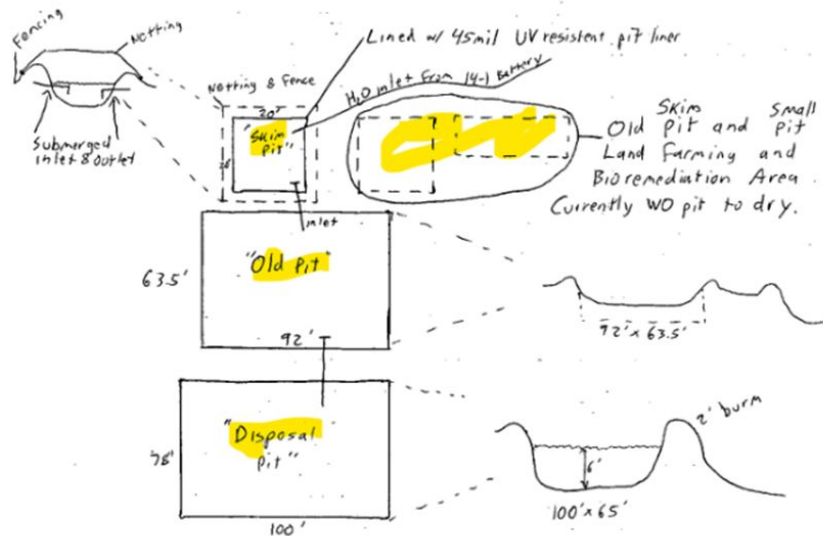 Fencing
Netting
Submerged
inlet & outlet
Lined w/ 45mil UV resistent pit liner
Netting & Fence
H2O inlet from 14-1 Battery
20'
"Skim
Pit"
inlet
Skim Small
Old Pit and Pit
Land Farming and
Bioremediation Area
Currently WO pit to dry.
"Old pit"
63.5'
92'
92' x 63.5'
"Disposal
pit"
100'
2' burm
6'
100' x 65'